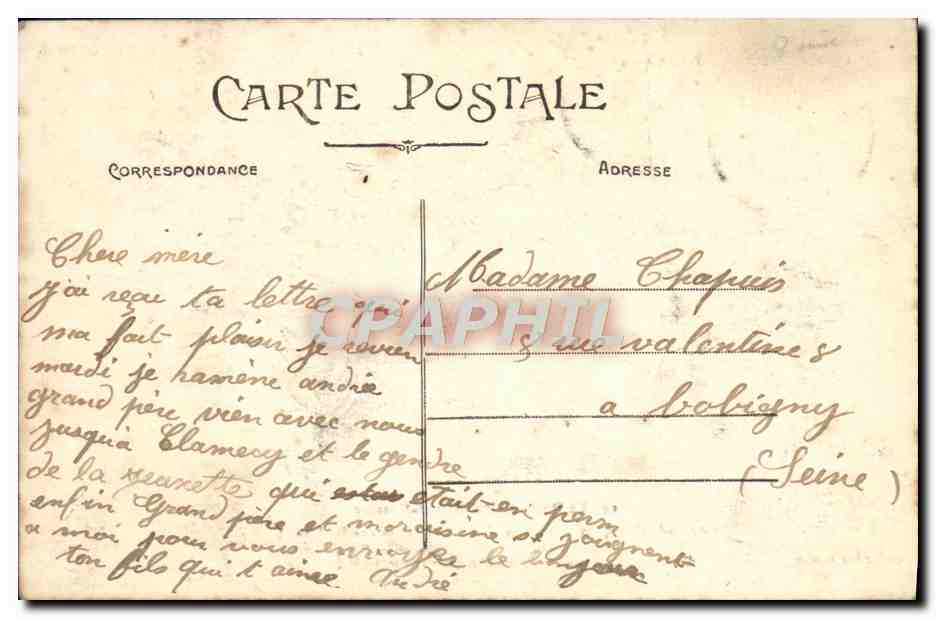 CARTE POSTALE
CORRESPONDANCE
ADRESSE
Chere mère
j'ai reçu ta lettre qui
ma fait plaisir je revien
mardi je ramène andrée
grand père vien avec nous
jusqu'à Clamecy et le gendre
de la qui etait en perm
enfin Grand père et se joignent
a moi pour vous envoyer le bonjour
ton fils qui t'aime André
Madame Chapuis
8 rue valentine 8
a bobigny
(Seine)
CPAPHIL